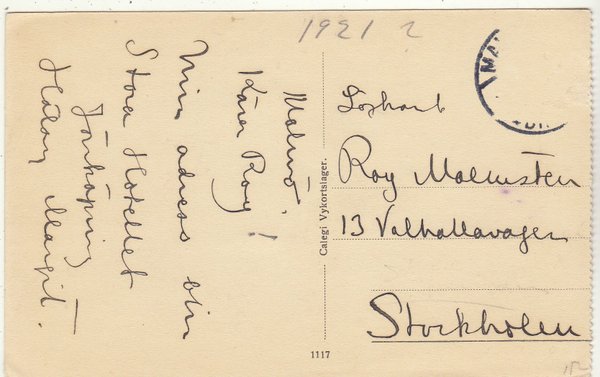 1921 ?
Malmö.
Kära Roy!
Min adress blir
Stora Hotellet
Jönköping
Hälsn Margit.
Calegi Vykortslager.
1117
MAL
Roy Malmsten
13 Valhallavägen
Stockholm